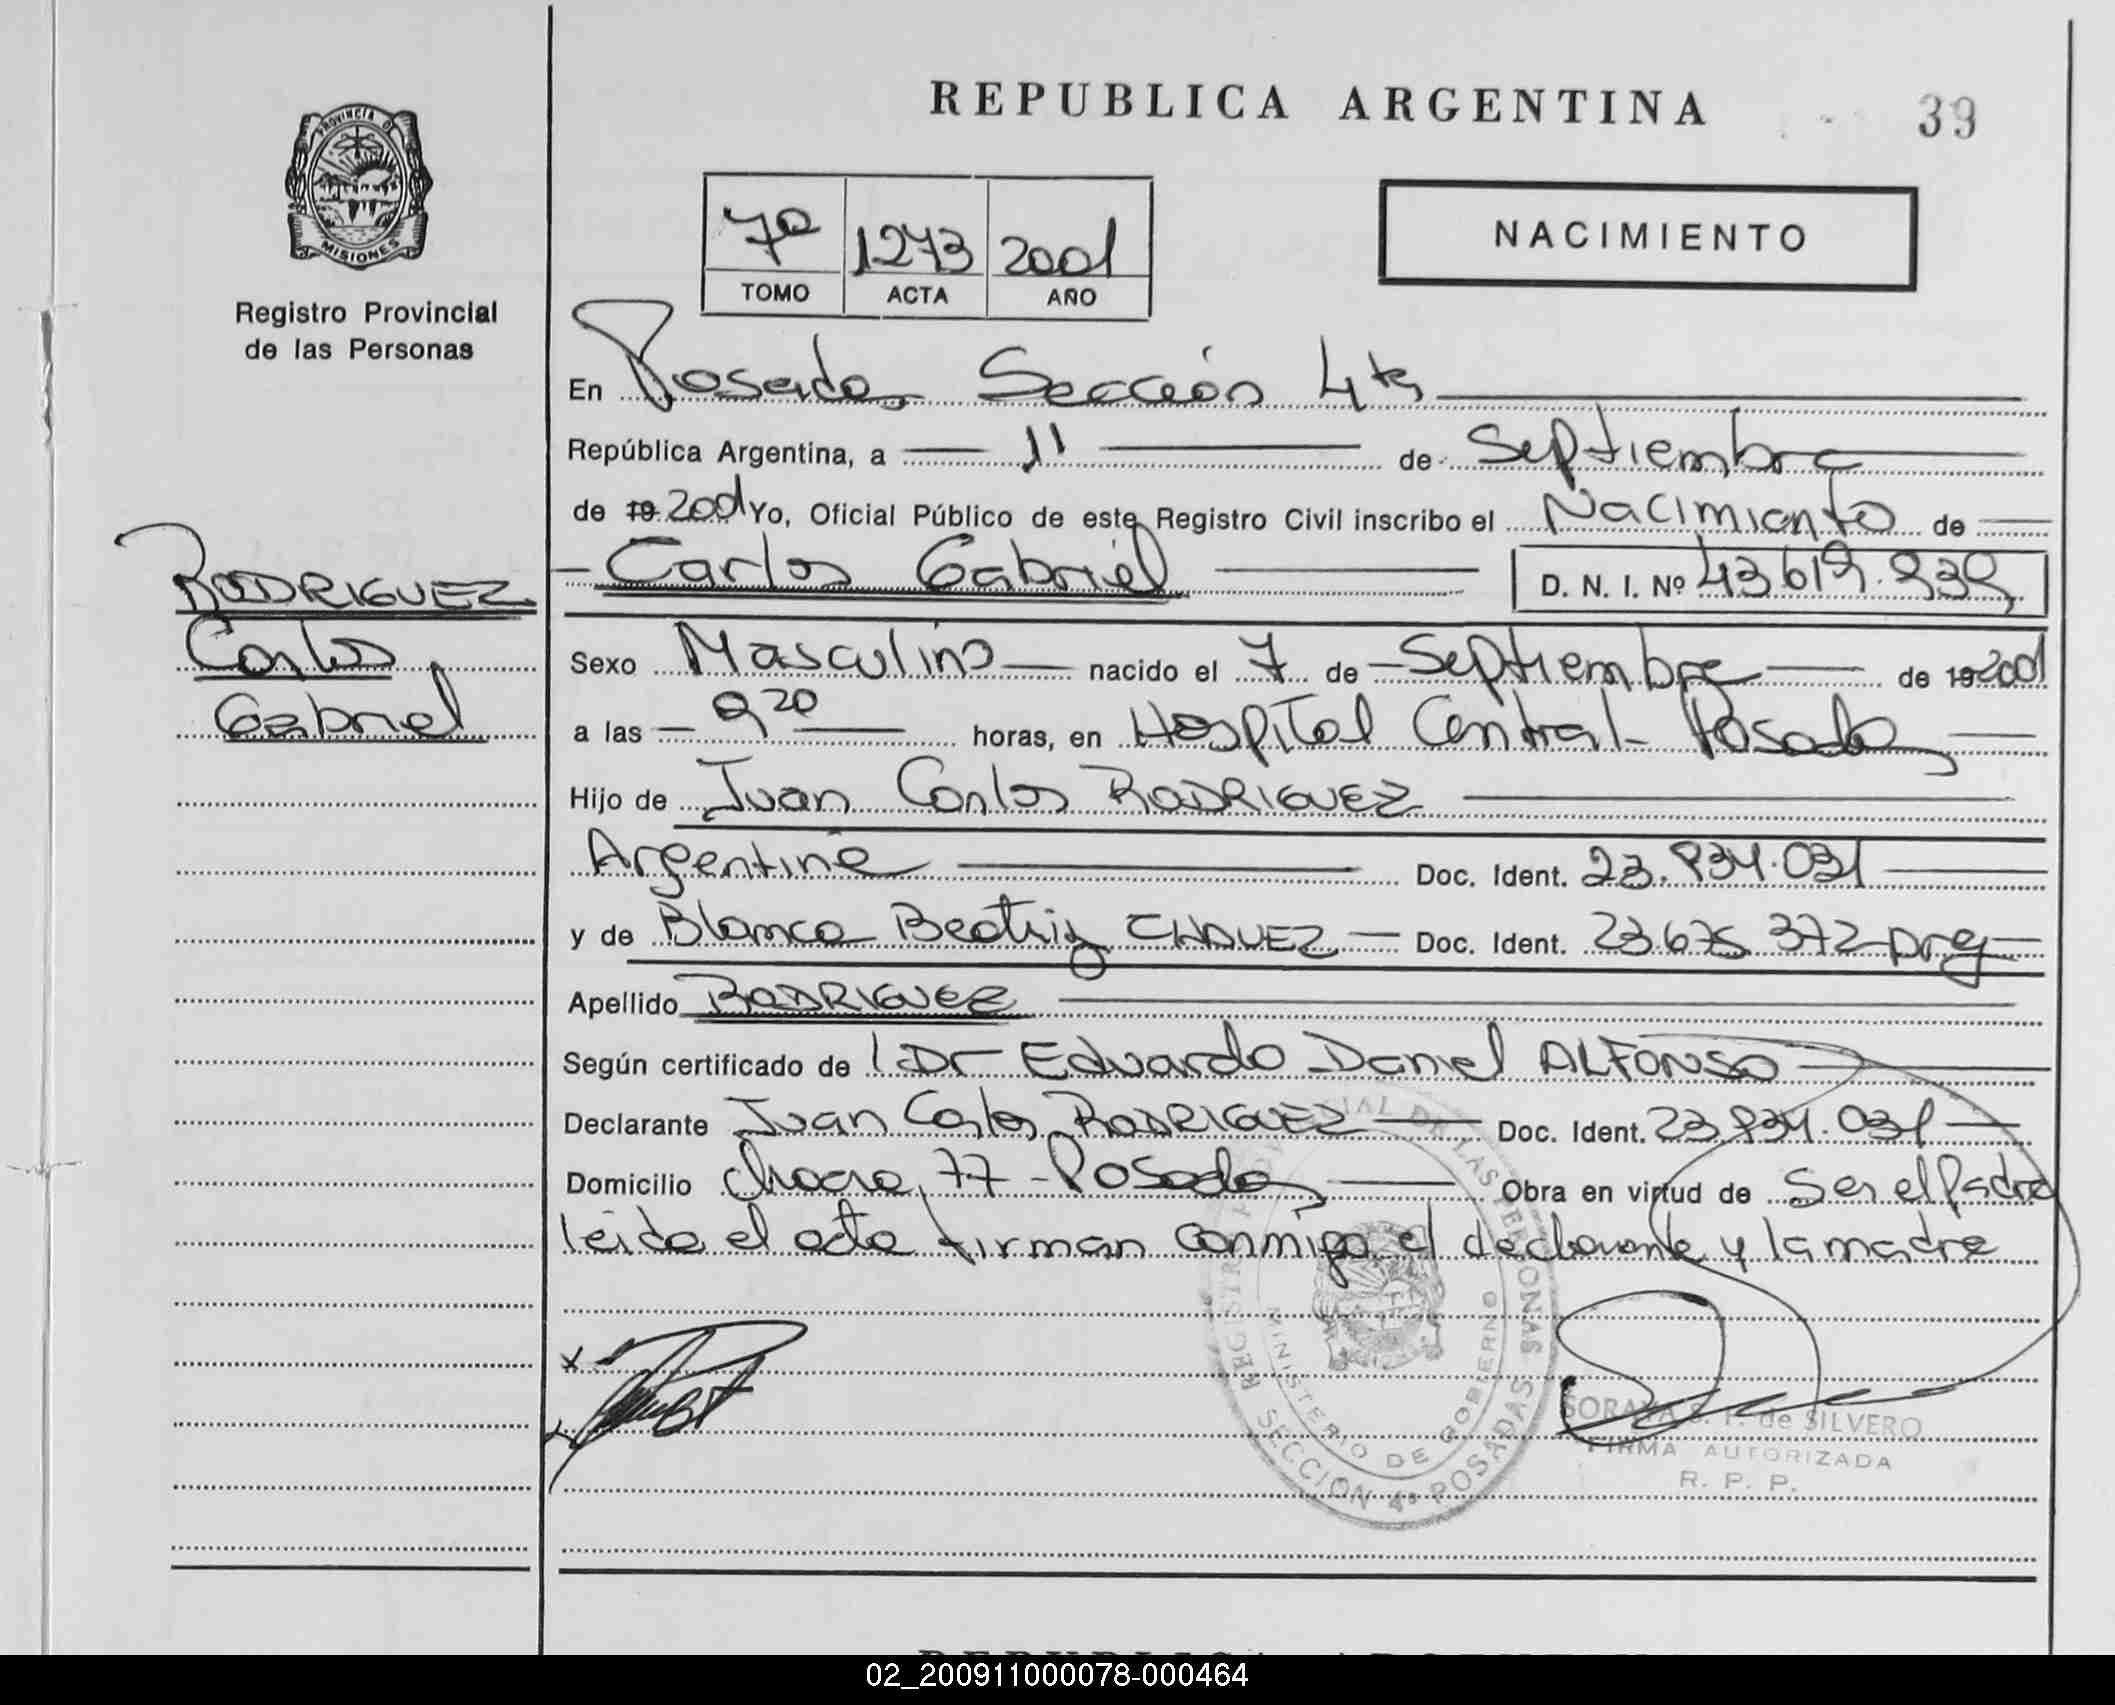 REPUBLICA ARGENTINA
39
PROVINCIA D
MISIONES
Registro Provincial
de las Personas
7º 1273 2001
TOMO ACTA AÑO
NACIMIENTO
En Posadas Sección 4ta
República Argentina, a 11 de Septiembre
de 19 2001 Yo, Oficial Público de este Registro Civil inscribo el Nacimiento de
Carlos Gabriel D. N. I. Nº 43.619.939
RODRIGUEZ
Carlos
Gabriel
Sexo Masculino nacido el 7 de Septiembre de 19 2001
a las 9 20 horas, en Hospital Central Posadas
Hijo de Juan Carlos RODRIGUEZ
Argentina Doc. Ident. 23.834.031
y de Blanca Beatriz CHAVEZ Doc. Ident. 23.675.372 Arg
Apellido RODRIGUEZ
Según certificado de l Dr Eduardo Daniel ALFONSO
Declarante Juan Carlos RODRIGUEZ Doc. Ident. 23.834.031
Domicilio Chacra 77 - Posadas Obra en virtud de Ser el Padre
leida el acta firman conmigo el declarante y la madre
REGISTRO PROVINCIAL DE LAS PERSONAS
MINISTERIO DE GOBIERNO
SECCION 4ª POSADAS
SORAYA S. F. de SILVERO
FIRMA AUTORIZADA
R. P. P.
02_200911000078-000464